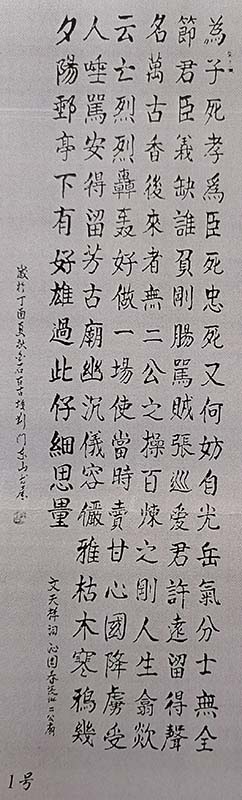 為子死孝爲臣死忠死又何妨自光岳氣分士無全
節君臣義缺誰負剛腸罵賊張巡愛君許遠留得聲
名萬古香後來者無二公之操百煉之剛人生翕歘
云亡烈烈轟轟好做一場使當時賣甘心國降虜受
人唾罵安得留芳古廟幽沉儀容儼雅枯木寒鴉幾
夕陽郵亭下有好雄過此仔細思量
文天祥词沁園春二公廟
歲於丁酉夏
1号